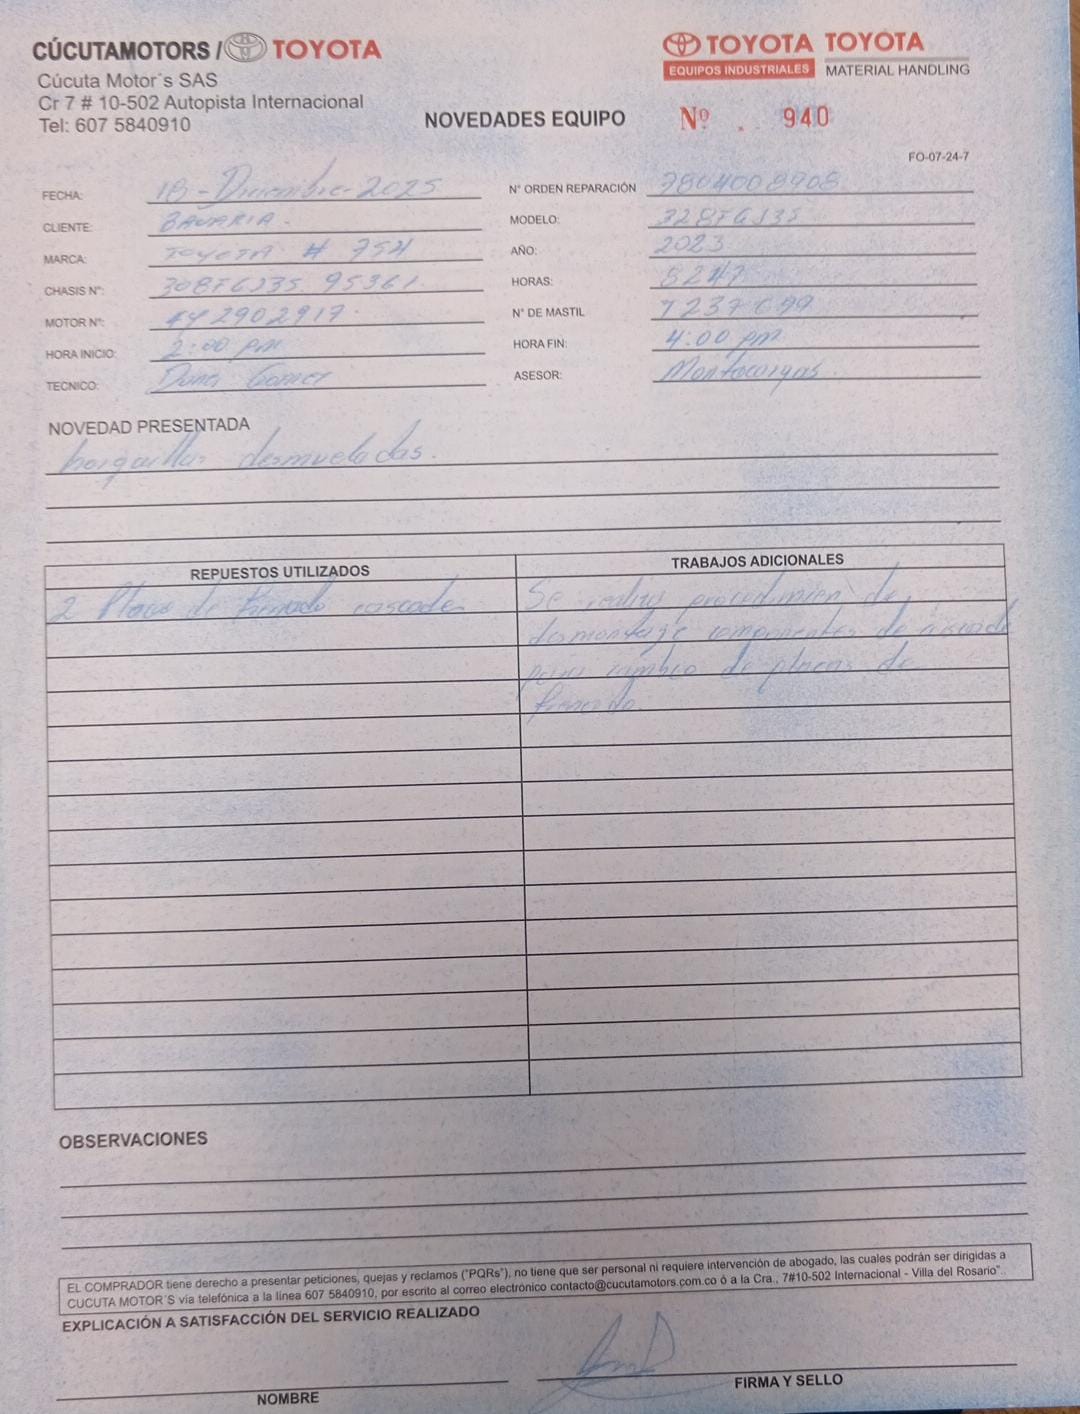 CÚCUTAMOTORS / TOYOTA
Cúcuta Motor´s SAS
Cr 7 # 10-502 Autopista Internacional
Tel: 607 5840910
TOYOTA TOYOTA
EQUIPOS INDUSTRIALES MATERIAL HANDLING
NOVEDADES EQUIPO Nº 940
FO-07-24-7
FECHA: 18-Diciembre-2025 N° ORDEN REPARACIÓN
CLIENTE: BAVARIA. MODELO:
MARCA: TOYOTA # 754 AÑO: 2023
CHASIS N°: 95361 HORAS: 8247
MOTOR N°: 4Y2902917. N° DE MASTIL
HORA INICIO: 2:00 pm HORA FIN: 4:00 pm
TECNICO: Gomez ASESOR: Montacargas
NOVEDAD PRESENTADA
horquillas desmueladas.
REPUESTOS UTILIZADOS TRABAJOS ADICIONALES
2 Placas de frenado cascade Se realiza de
desmontaje componentes de cascade
para cambio de placas de
frenado
OBSERVACIONES
EL COMPRADOR tiene derecho a presentar peticiones, quejas y reclamos ("PQRs"), no tiene que ser personal ni requiere intervención de abogado, las cuales podrán ser dirigidas a
CUCUTA MOTOR´S vía telefónica a la linea 607 5840910, por escrito al correo electrónico contacto@cucutamotors.com.co ó a la Cra., 7#10-502 Internacional - Villa del Rosario".
EXPLICACIÓN A SATISFACCIÓN DEL SERVICIO REALIZADO
NOMBRE FIRMA Y SELLO